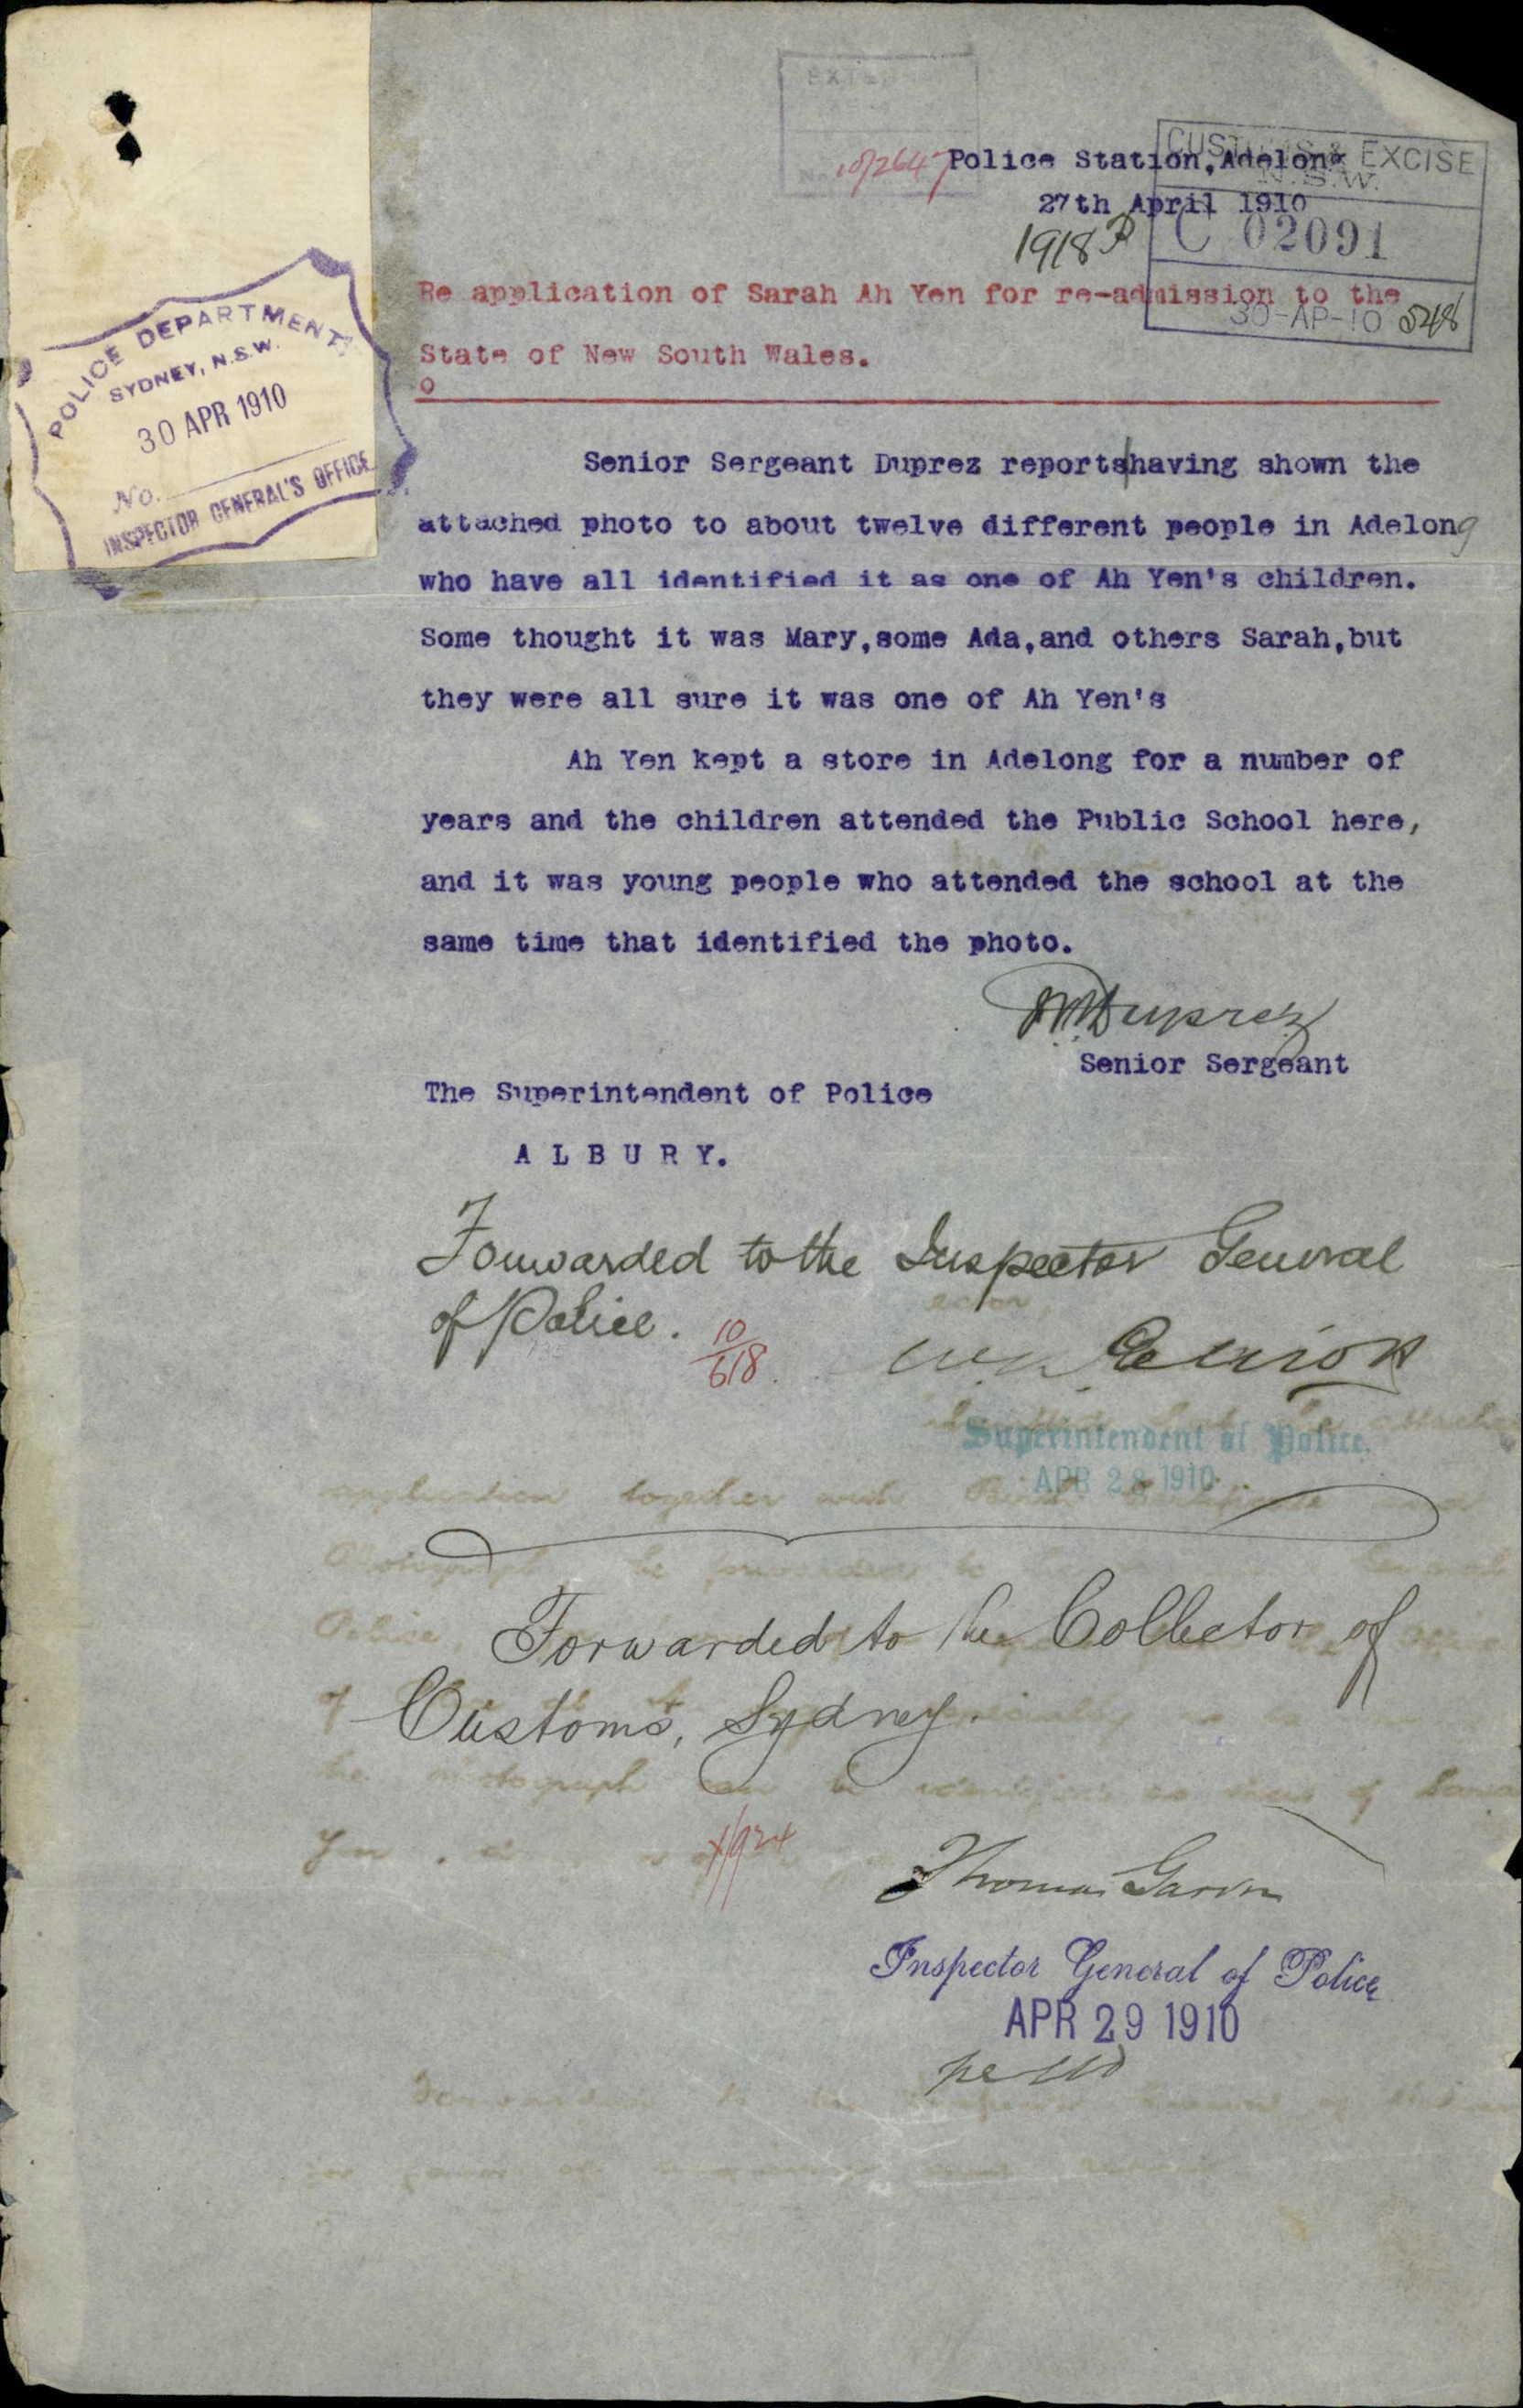 POLICE DEPARTMENT
SYDNEY, N.S.W.
30 APR 1910
No.
INSPECTOR GENERAL'S OFFICE
10/2647
Police Station,Adelong
27th April 1910
CUSTOMS & EXCISE
N.S.W.
C 02091
30-AP-10
1918
Re application of Sarah Ah Yen for re-admission to the
State of New South Wales.
Senior Sergeant Duprez reports having shown the
attached photo to about twelve different people in Adelong
who have all identified it as one of Ah Yen's children.
Some thought it was Mary,some Ada,and others Sarah,but
they were all sure it was one of Ah Yen's
Ah Yen kept a store in Adelong for a number of
years and the children attended the Public School here,
and it was young people who attended the school at the
same time that identified the photo.
Duprez
Senior Sergeant
The Superintendent of Police
A L B U R Y.
Forwarded to the Inspector General
of Police.
10/618.
Superintendent of Police.
APR 28 1910
Forwarded to the Collector of
Customs, Sydney.
Thomas Garvin
Inspector General of Police
APR 29 1910